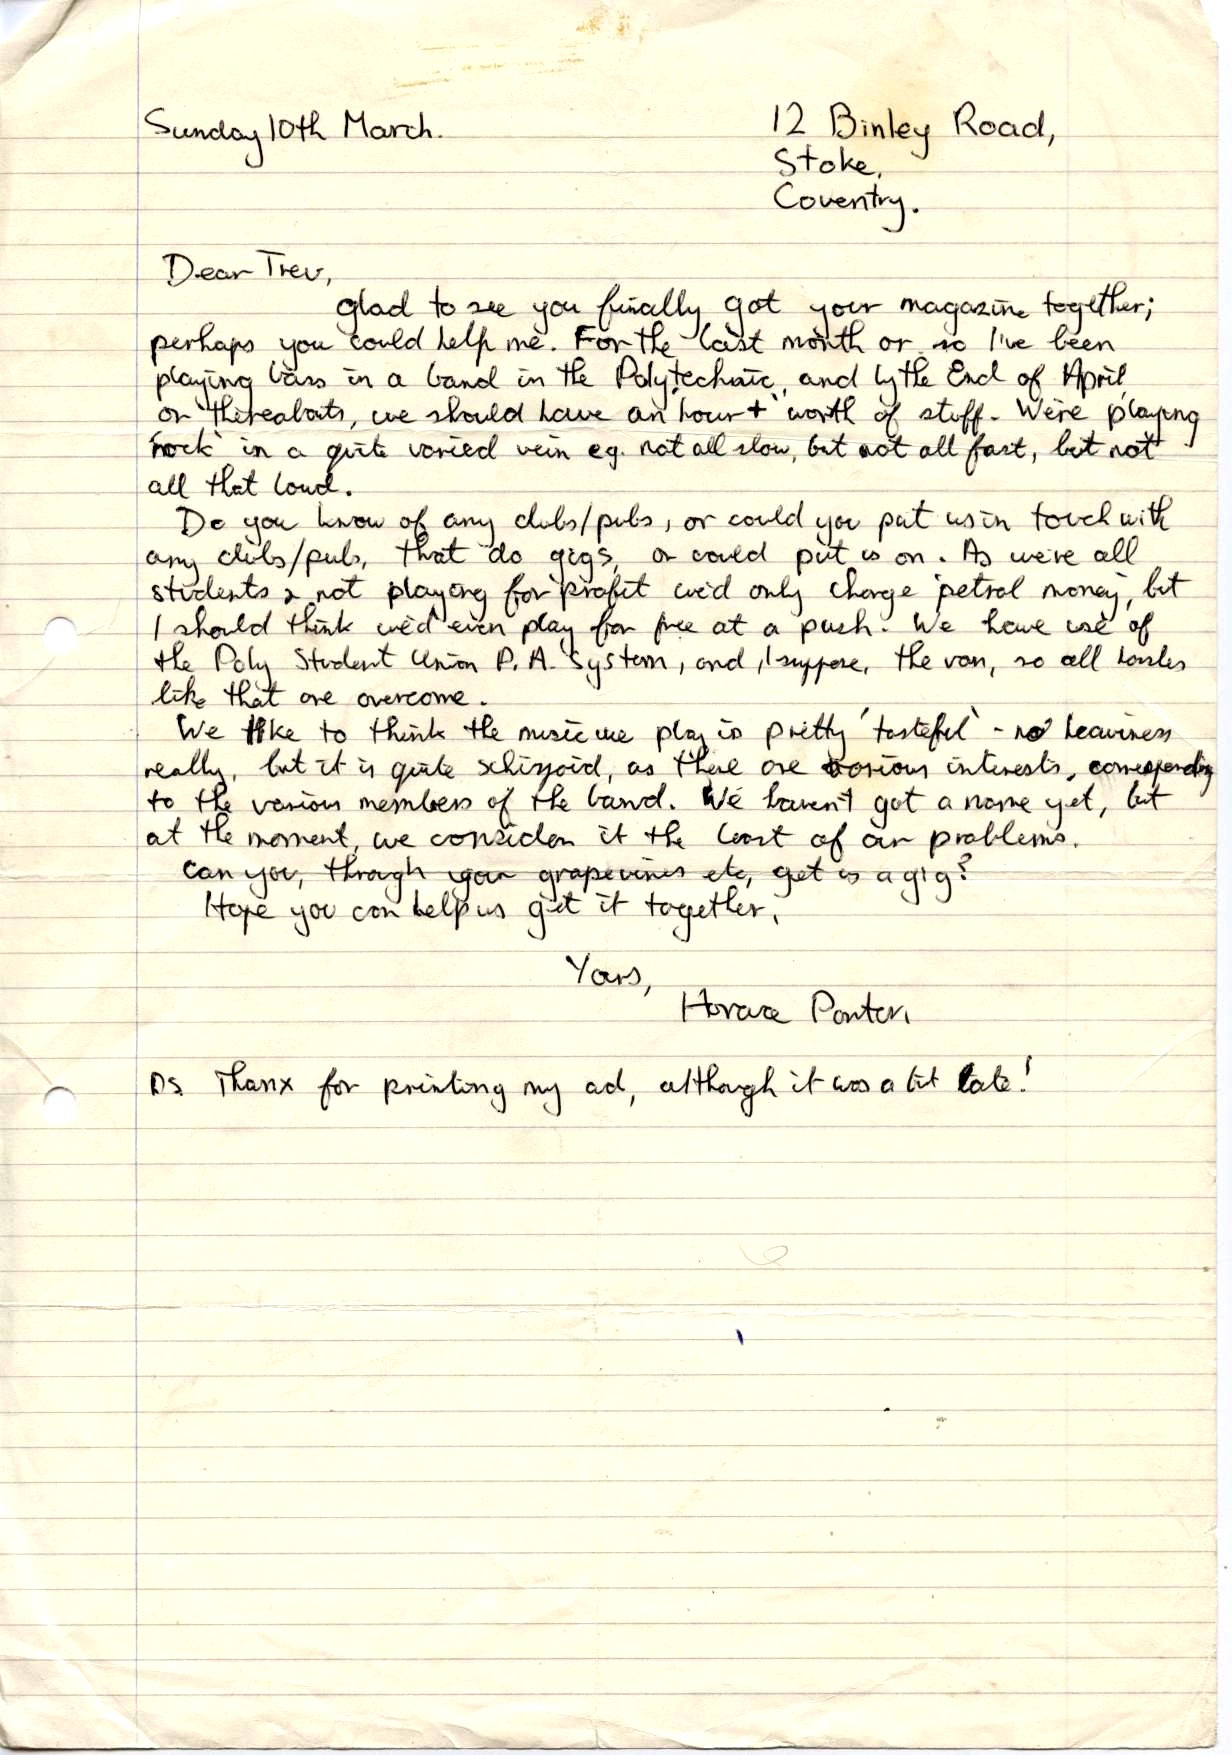 Sunday 10th March.
12 Binley Road,
Stoke,
Coventry.
Dear Trev,
glad to see you finally got your magazine together;
perhaps you could help me. For the last month or so I've been
playing bass in a band in the Polytechnic, and by the End of April,
or thereabouts, we should have an hour + worth of stuff. We're playing
'rock' in a quite varied vein eg. not all slow, but not all fast, but not
all that loud.
Do you know of any clubs/pubs, or could you put us in touch with
any clubs/pubs, that do gigs, or could put us on. As we're all
students & not playing for profit we'd only charge 'petrol money', but
I should think we'd even play for free at a push. We have use of
the Poly Student Union P.A. System, and, I suppose, the van, so all hassles
like that are overcome.
We like to think the music we play is pretty 'tasteful' - no heaviness
really, but it is quite schizoid, as there are various interests, corresponding
to the various members of the band. We haven't got a name yet, but
at the moment, we consider it the least of our problems.
Can you, through your grapevines etc, get us a gig?
Hope you can help us get it together,
Yours,
Horace Panter.
Ps. Thanx for printing my ad, although it was a bit late!